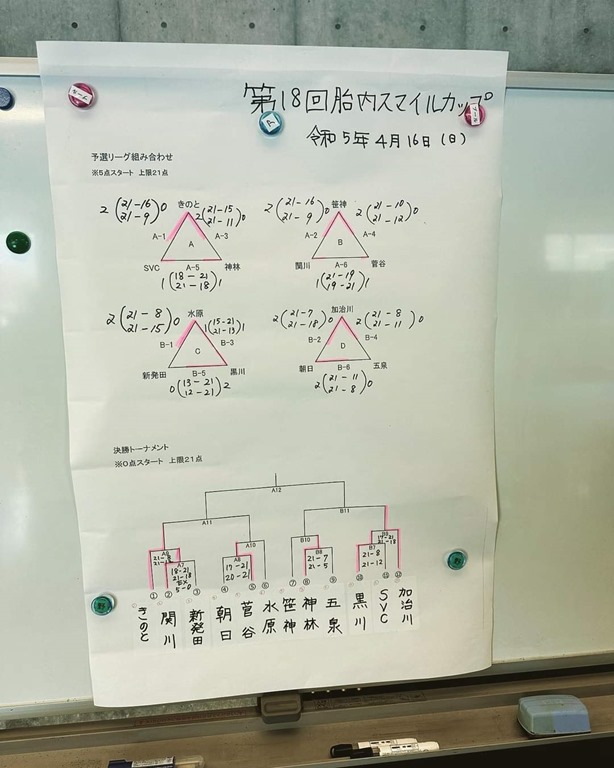 第18回胎内スマイルカップ
令和5年4月16日(日)
予選リーグ組み合わせ
※5点スタート 上限21点
2(21-16 21-9)0 きのと 2(21-15 21-11)0
A-1 A A-3
SVC A-5 神林
1(18-21 21-18)1
2(21-16 21-9)0 笹神 2(21-10 21-12)0
A-2 B A-4
関川 A-6 菅谷
1(21-19 19-21)1
2(21-8 21-15)0 水原 1(15-21 21-13)1
B-1 C B-3
新発田 B-5 黒川
0(13-21 12-21)2
2(21-7 21-18)0 加治川 2(21-8 21-11)0
B-2 D B-4
朝日 B-6 五泉
2(21-11 21-8)0
決勝トーナメント
※0点スタート 上限21点
A12
A11 B11
A10 B10
A7 B8 B7
18-21
21-18
5-0
21-7
21-5
21-8
21-12
① ② ③ ④ ⑤ ⑥ ⑦ ⑧ ⑨ ⑩ ⑪ ⑫
きのと
関川
新発田
朝日
菅谷
水原
笹神
神林
五泉
黒川
SVC
加治川